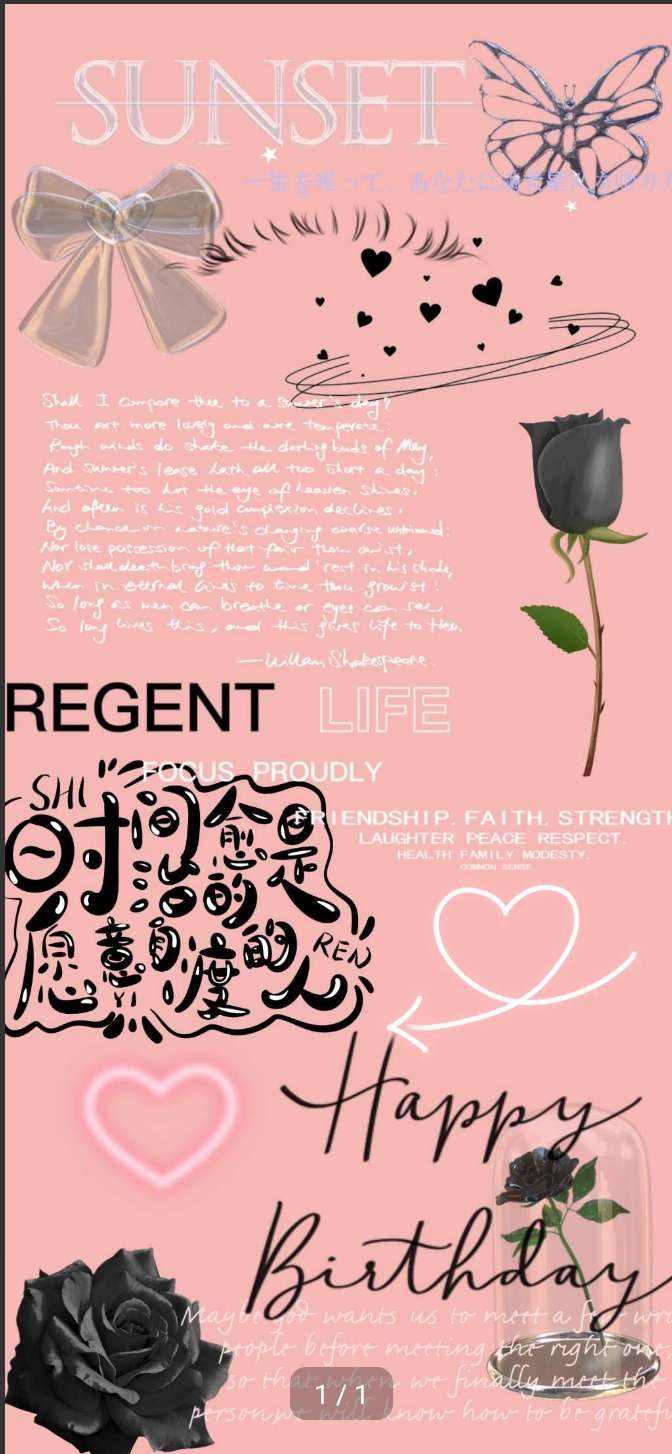 SUNSET
Shall I compare thee to a summer's day?
Thou art more lovely and more temperate:
Rough winds do shake the darling buds of May,
And summer's lease hath all too short a day:
Sometime too hot the eye of heaven shines,
And often is his gold complexion declines,
By chance or nature's changing course untrimmed:
Nor lose possession of that fair thou
Nor shall death brag thou wand'rest in his shade,
When in eternal lines to time thou growist:
So long as men can breathe or eyes can see
So long lives this, and this gives life to thee.
—William Shakespeare.
REGENT LIFE
FOCUS PROUDLY
FRIENDSHIP. FAITH. STRENGTH
LAUGHTER PEACE RESPECT.
HEALTH FAMILY MODESTY.
COMMON SENSE.
SHI
时间治愈的是
愿意自度的人
YI
REN
Happy
Birthday
Maybe god wants us to meet a few wro
people before meeting the right one,
so that when we finally meet the
person,we will know how to be gratefu
1 / 1